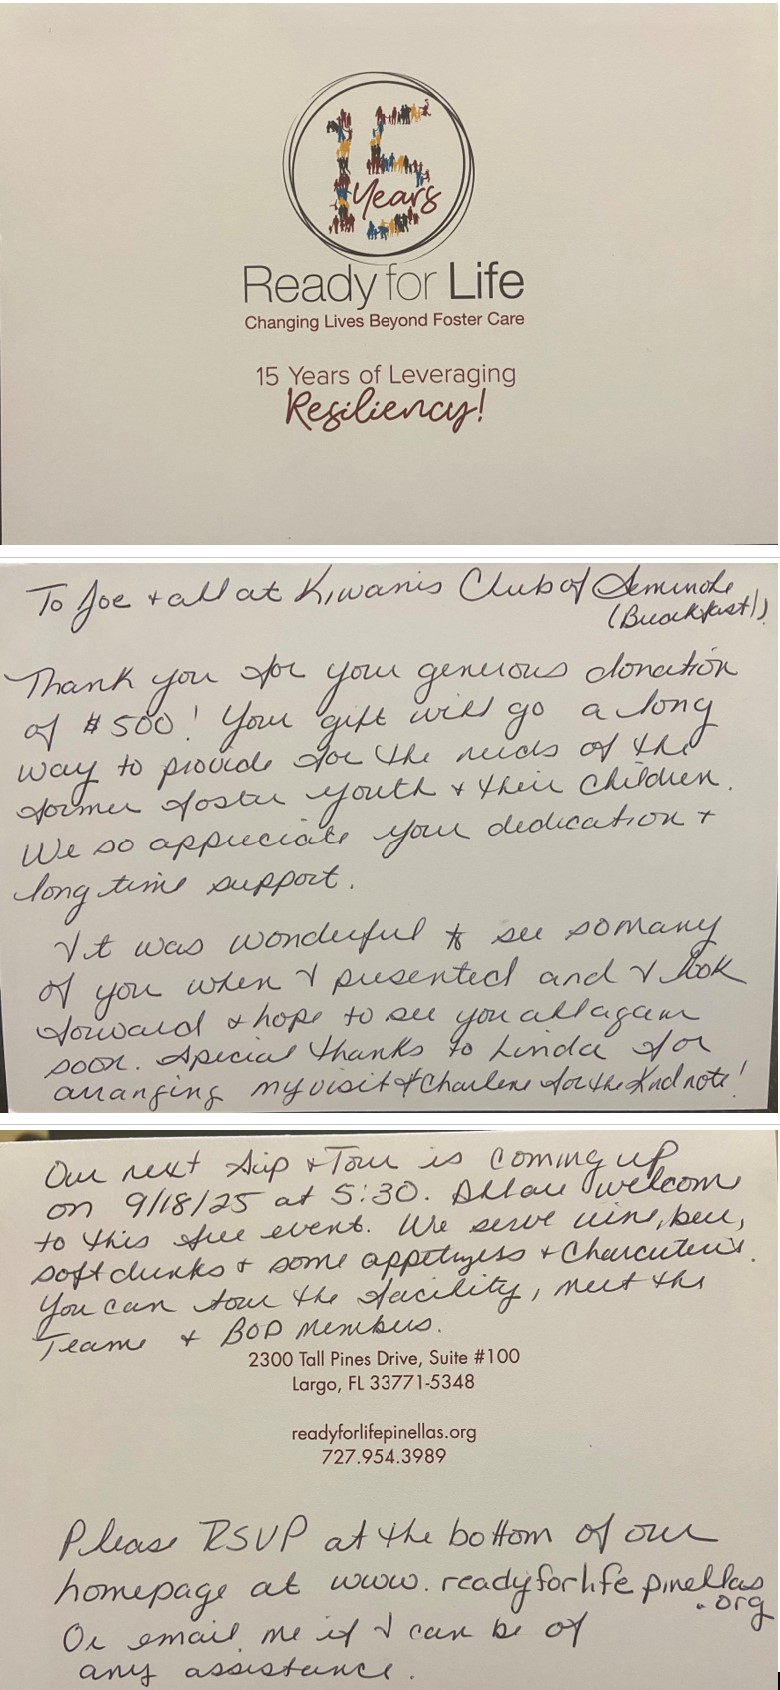 15
Years
Ready for Life
Changing Lives Beyond Foster Care
15 Years of Leveraging
Resiliency!
To Joe + all at Kiwanis Club of Seminole
(Breakfast!)
Thank you for your generous donation
of $500! Your gift will go a long
way to provide for the needs of the
former foster youth + their children.
We so appreciate your dedication +
long time support.
It was wonderful to see so many
of you when I presented and I look
forward & hope to see you all again
soon. Special thanks to Linda for
arranging my visit & Charlene for the kind note!
Our next Sip + Tour is coming up
on 9/18/25 at 5:30. All are welcome
to this free event. We serve wine, beer,
soft drinks + some appetizess + Charcuterie.
You can tour the facility, meet the
Teame + BOD members.
2300 Tall Pines Drive, Suite #100
Largo, FL 33771-5348
readyforlifepinellas.org
727.954.3989
Please RSVP at the bottom of our
homepage at www.readyforlifepinellas
.org
Or email me if I can be of
any assistance.